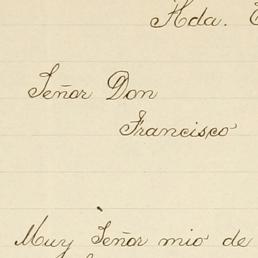 Hda.
Señor Don
Francisco
Muy Señor mio de